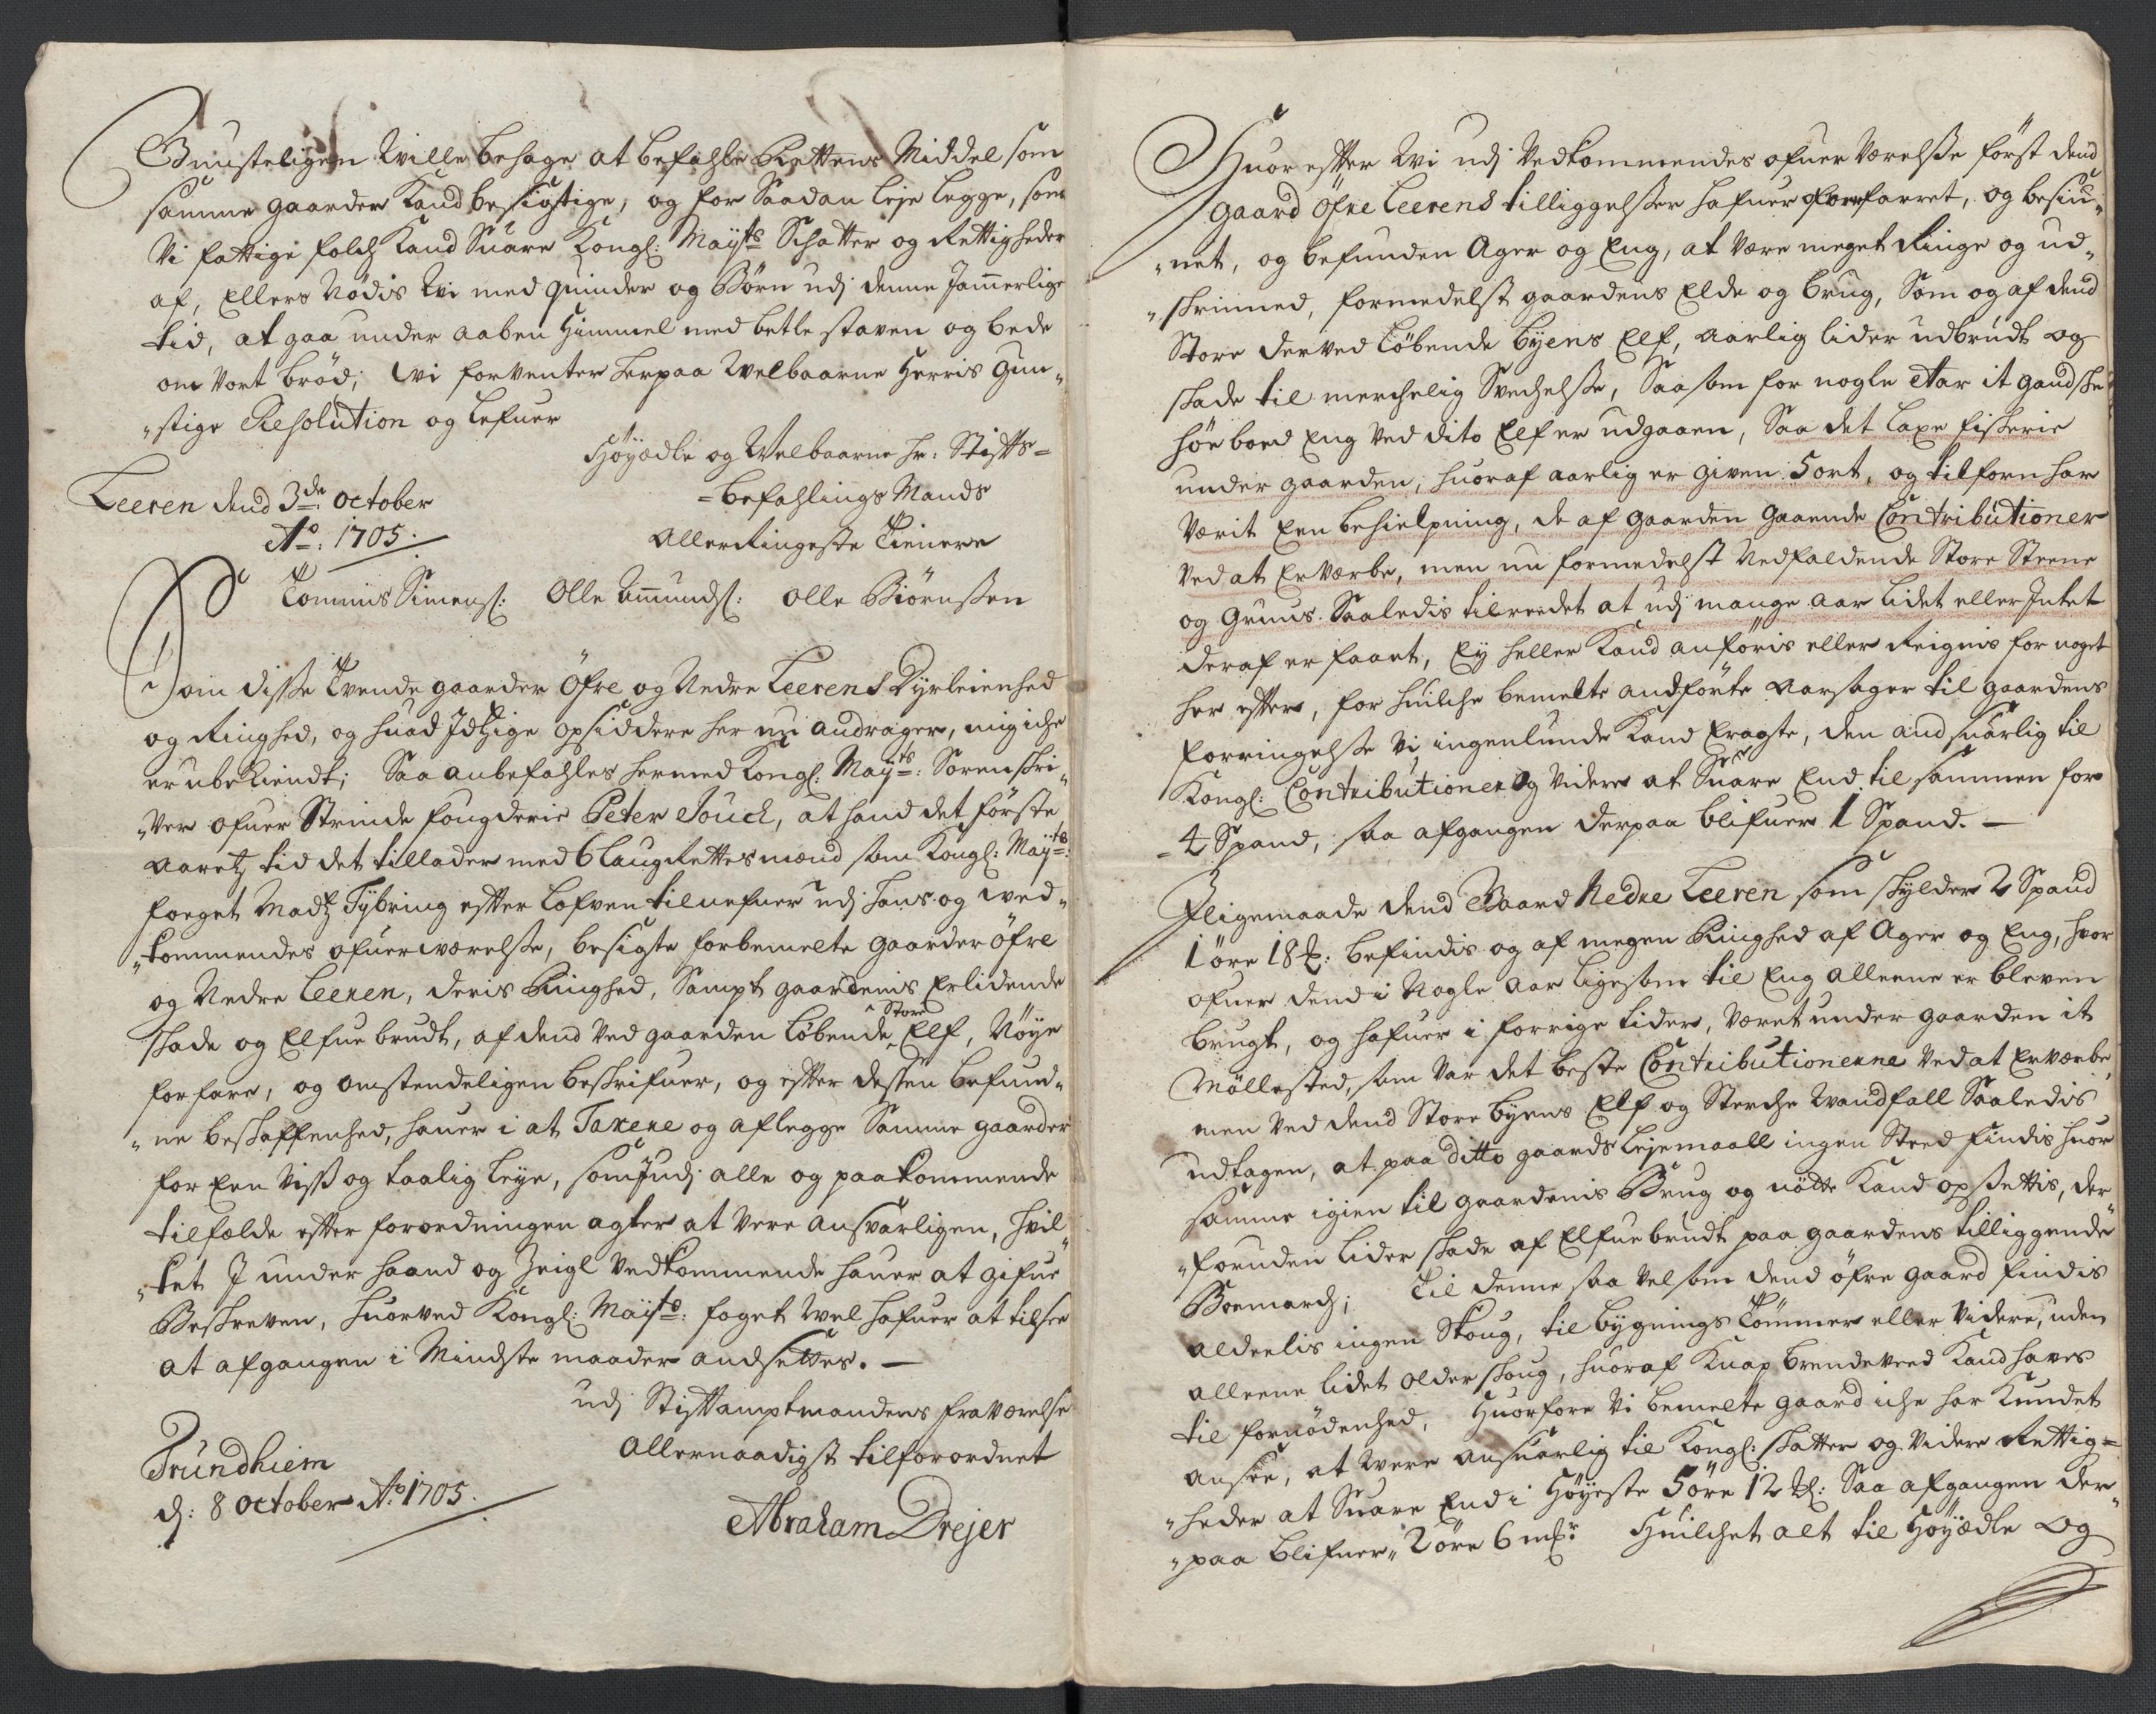 Gunsteligen Wille behage at befahle Rettens Middel som
samme gaarder Kand besigtige, og for Saadan leje legge, som
Vi fattige folch Kand Suare Kongl: Mayts Schatter og Rettigheder
af, Ellers Nødis Wi med quinder og Børn udj denne Jammerlige
tid, at gaa under aaben Himmel med betle staven og bede
om Vort brød; Wi forventer herpaa Welbaarne Herris Gun„
„stige Resolution og lefuer
Høyædle og Welbaarne Hr: Stifts=
=befahlings Mands
Allerringeste Tienere
Leeren dend 3de October
Ao: 1705.
Tommis Simens: Olle Amunds: Olle Biørnssen
Som disse Tvende gaarder Øfre og Nedre Leerens Dyrleienhed
og Ringhed, og huad Jdtzige opsiddere her nu andrager, mig iche
er ubekiendt; Saa anbefahles hermed Kongl: Mayts: Sorenskri„
„ver ofuer Strinde fougderie Peter Jouch, at hand det første
aaretz tid det tillader med 6 laug Rettes mænd som Kongl: Mayts:
foeget Madtz Tybring efter Lofven tilnefner udj hans og ved„
„kommendes ofuerværelse, besigte forbemelte gaarder øfre
og Nedre Leeren, deris Ringhed, Sampt gaardenis Erlidende
skade og Elfue brudt, af dend ved gaarden løbende Store Elf, Nøye
forfare, og omstendeligen beskrifuer, og efter dessen befund„
„ne beskaffenhed, hauer i at Taxere og aflegge Samme gaarder
for Een Viss og taalig leye, som J udj alle og paakommende
tilfælde efter forordningen agter at Vere ansvarligen, hvil„
„ket J under haand og Zeigl Vedkommende hauer at gifue
Beskreven, huorved Kongl: Mayts: foget Vel hafuer at tilsee
at afgangen i Mindste maader andsettes. —
udj Stiftamptmandens fraværelse
Allernaadigst tilforordnet
Trundhiem
d: 8 October Ao 1705.
Abraham Drejer
Huorefter Wi udj Vedkommendes ofuer Værelsse først dend
gaard Øfre Leerens tilliggelsser hafuer forfarret, og besiu„
„net, og befunden Ager og Eng, at Være meget Ringe og ud„
„skrinned, formedelst gaardens Elde og brug, Som og af dend
Store derved løbende byens Elf, aarlig lider udbrudt og
skade til merchelig Svechelsse, Saasom for nogle Aar it gandske
høe boed Eng Ved dito Elf er udgaaen, Saa det laxe fiskerie
under gaarden, huoraf aarlig er given 5 ort, og tilforn har
Værit Een behielpning, de af gaarden gaaende Contributioner
Ved at ErVærbe, men nu formedelst Nedfaldende Store Steene
og Gruus Saaledis tilreedet at udj mange aar lidet eller Jntet
deraf er faaet, Ey heller Kand anføris eller Reignis for noget
her efter, for huilche bemelte andførte aarsager til gaardens
forringelsse Vj ingenlunde Kand Eragte, den and suarlig til
Kongl: Contributioner Og Videre at Suare End til sammen for
- 4 Spand, saa afgangen derpaa blifuer 1 Spand. —
Jligemaade dend Gaard Nedre Leeren som skylder 2 Spand
1 øre 18 : befindis og af megen Ringhed af Ager og Eng, hvor
ofuer dend i Nogle aar ligesom til Eng alleene er bleven
brugt, og hafuer i forrige tider, Været under gaarden it
Møllested, som Var det beste Contributionerne Ved at Erværbe,
men Ved dend Store byens Elf og Sterche Wandfall Saaledis
udtagen, at paa ditto gaards lejemaall ingen Sted findis huor
samme igien til gaardenis Brug og nøtte Kand opsettis, der
„foruden lider skade af Elfuebrudt paa gaardens tilliggende
Boemarch; Til denne saa Vel som dend øfre gaard findis
aldeelis ingen Skoug, til bygnings Tømmer eller Videre, uden
alleene lidet older skoug, huoraf Knap brendeveed Kand haves
til fornødenhed, Huorfore Vi bemelte gaard iche har Kundet
ansee, at Were ansuarlig til Kongl: skatter og Videre Rettig=
„heder at Suare End i Høyeste 5 øre 12 : Saa afgangen der„
„paa blifuer „ 2 øre 6 : Huilchet alt til Høyædle Og